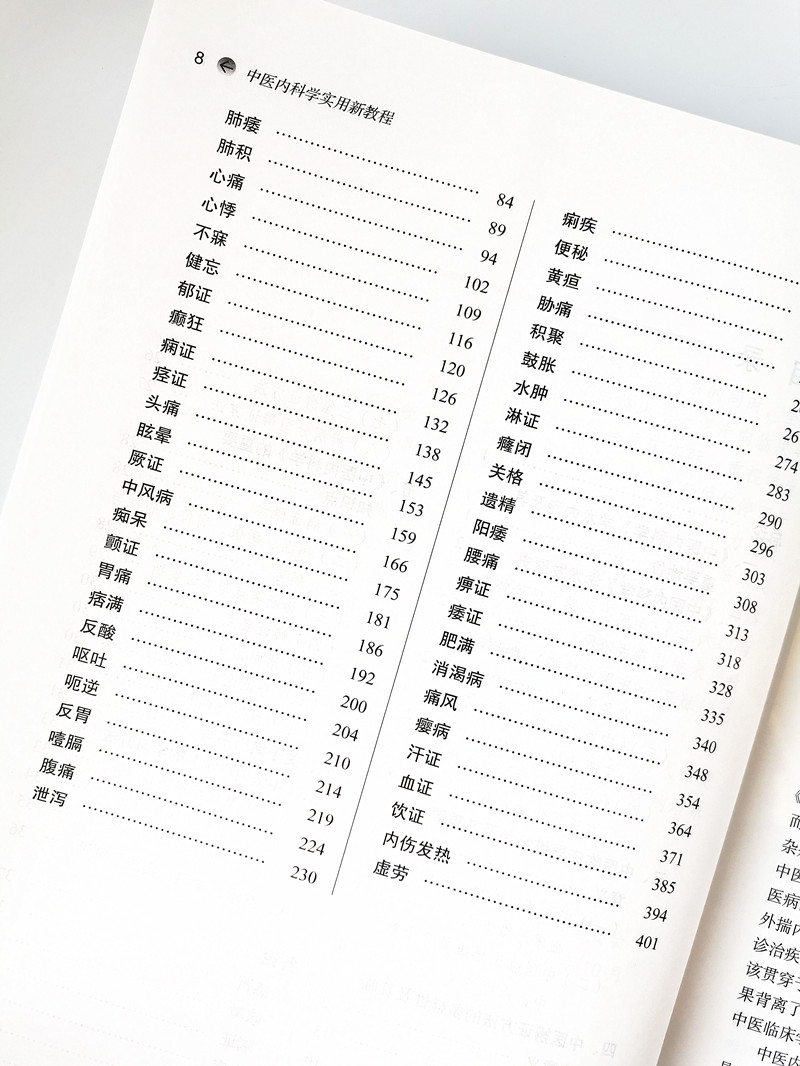 8 中医内科学实用新教程
肺痿 …… 84
肺积 …… 89
心痛 …… 94
心悸 …… 102
不寐 …… 109
健忘 …… 116
郁证 …… 120
癫狂 …… 126
痫证 …… 132
痉证 …… 138
头痛 …… 145
眩晕 …… 153
厥证 …… 159
中风病 …… 166
痴呆 …… 175
颤证 …… 181
胃痛 …… 186
痞满 …… 192
反酸 …… 200
呕吐 …… 204
呃逆 …… 210
反胃 …… 214
噎膈 …… 219
腹痛 …… 224
泄泻 …… 230
痢疾 ……
便秘 ……
黄疸 ……
胁痛 ……
积聚 ……
鼓胀 ……
水肿 …… 274
淋证 …… 283
癃闭 …… 290
关格 …… 296
遗精 …… 303
阳痿 …… 308
腰痛 …… 313
痹证 …… 318
痿证 …… 328
肥满 …… 335
消渴病 …… 340
痛风 …… 348
瘿病 …… 354
汗证 …… 364
血证 …… 371
饮证 …… 385
内伤发热 …… 394
虚劳 …… 401
《
而
杂
中医
医病
外揣内
诊治疾
该贯穿于
果背离了
中医临床学
中医内